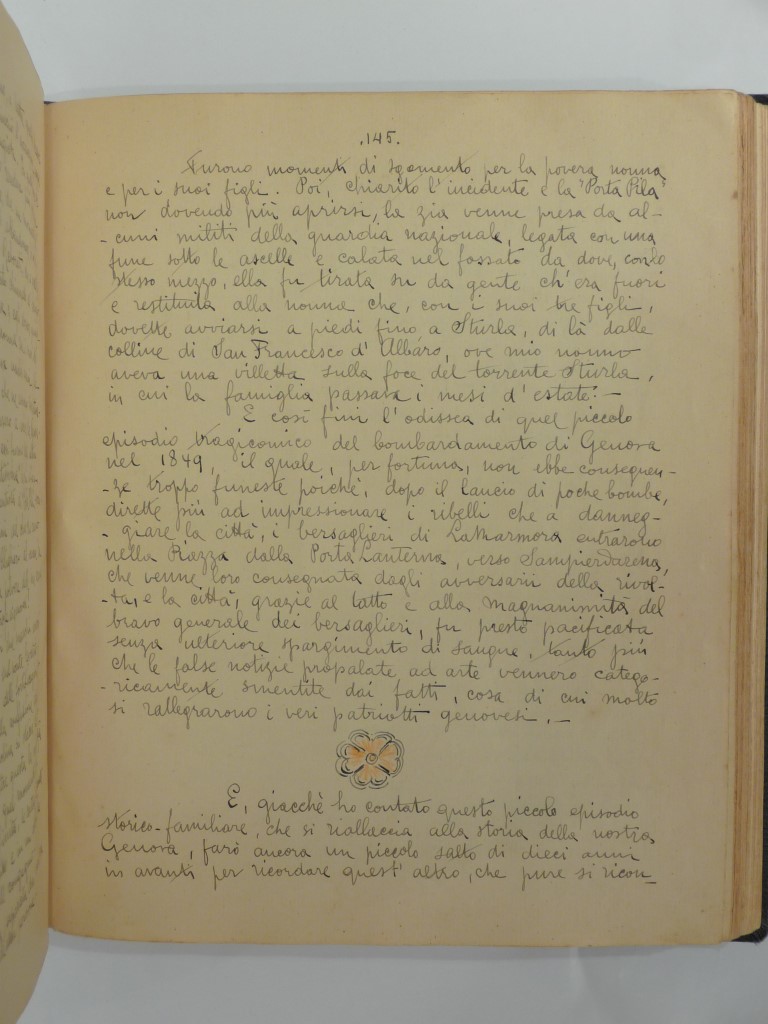 .145.
Furono momenti di sgomento per la povera nonna
e per i suoi figli. Poi, chiarito l'incidente e la "Porta Pila"
non dovendo più aprirsi, la zia venne presa da al-
-cuni militi della guardia nazionale, legata con una
fune sotto le ascelle e calata nel fossato da dove, con lo
stesso mezzo, ella fu tirata su da gente ch'era fuori
e restituita alla nonna che, con i suoi tre figli,
dovette avviarsi a piedi fino a Sturla, di là dalle
colline di San Francesco d'Albaro, ove mio nonno
aveva una villetta sulla foce del torrente Sturla,
in cui la famiglia passava i mesi d'estate:—
E così finì l'odissea di quel piccolo
episodio tragicomico del bombardamento di Genova
nel 1849, il quale, per fortuna, non ebbe conseguen-
-ze troppo funeste poichè, dopo il lancio di poche bombe,
dirette più ad impressionare i ribelli che a danneg-
-giare la città, i bersaglieri di LaMarmora entrarono
nella Piazza dalla Porta Lanterna, verso Sampierdarena,
che venne loro consegnata dagli avversarii della rivol-
-ta, e la città, grazie al tatto e alla magnanimità del
bravo generale dei bersaglieri, fu presto pacificata
senza ulteriore spargimento di sangue, tanto più
che le false notizie propalate ad arte vennero catego-
-ricamente smentite dai fatti, cosa di cui molto
si rallegrarono i veri patriotti genovesi.—
E, giacchè ho contato questo piccolo episodio
storico-familiare, che si riallaccia alla storia della nostra
Genova, farò ancora un piccolo salto di dieci anni
in avanti per ricordare quest'altro, che pure si ricon_